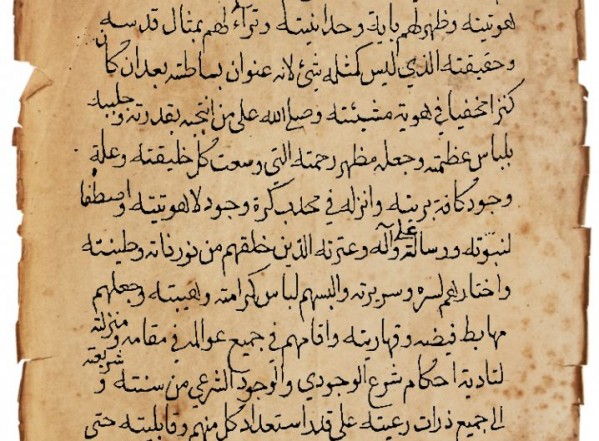 هويته وظهر لهم باية وحدانيته وتراءى لهم بمثال قدسه
وحقيقته الذي ليس كمثله شئ لانه عنوان بساطته بعد ان كا
كنزا مخفيا في هوية مشيئته وصلى الله على من انتجبه بقدرته وجلببه
بلباس عظمته وجعله مظهر رحمته التي وسعت كل خليقته وعلة
وجود كافة بريته وانزله في محدب كرة وجود لاهوتيته واصطفا
لنبوته ورسالته وعلى آله وعترته الذين خلقهم من نور ذاته وطينته
واختارهم لسره وسريرته والبسهم لباس كرامته وهيبته وجعلهم
مهابط فيضه وقهاريته واقامهم في جميع عوالمه في مقامه ومنزلته
لتادية احكام شرع الوجودي والوجود الشرعي من سنته و شريعته
الى جميع ذرات رعيته على قدر استعداد كل منهم وقابليته حتى